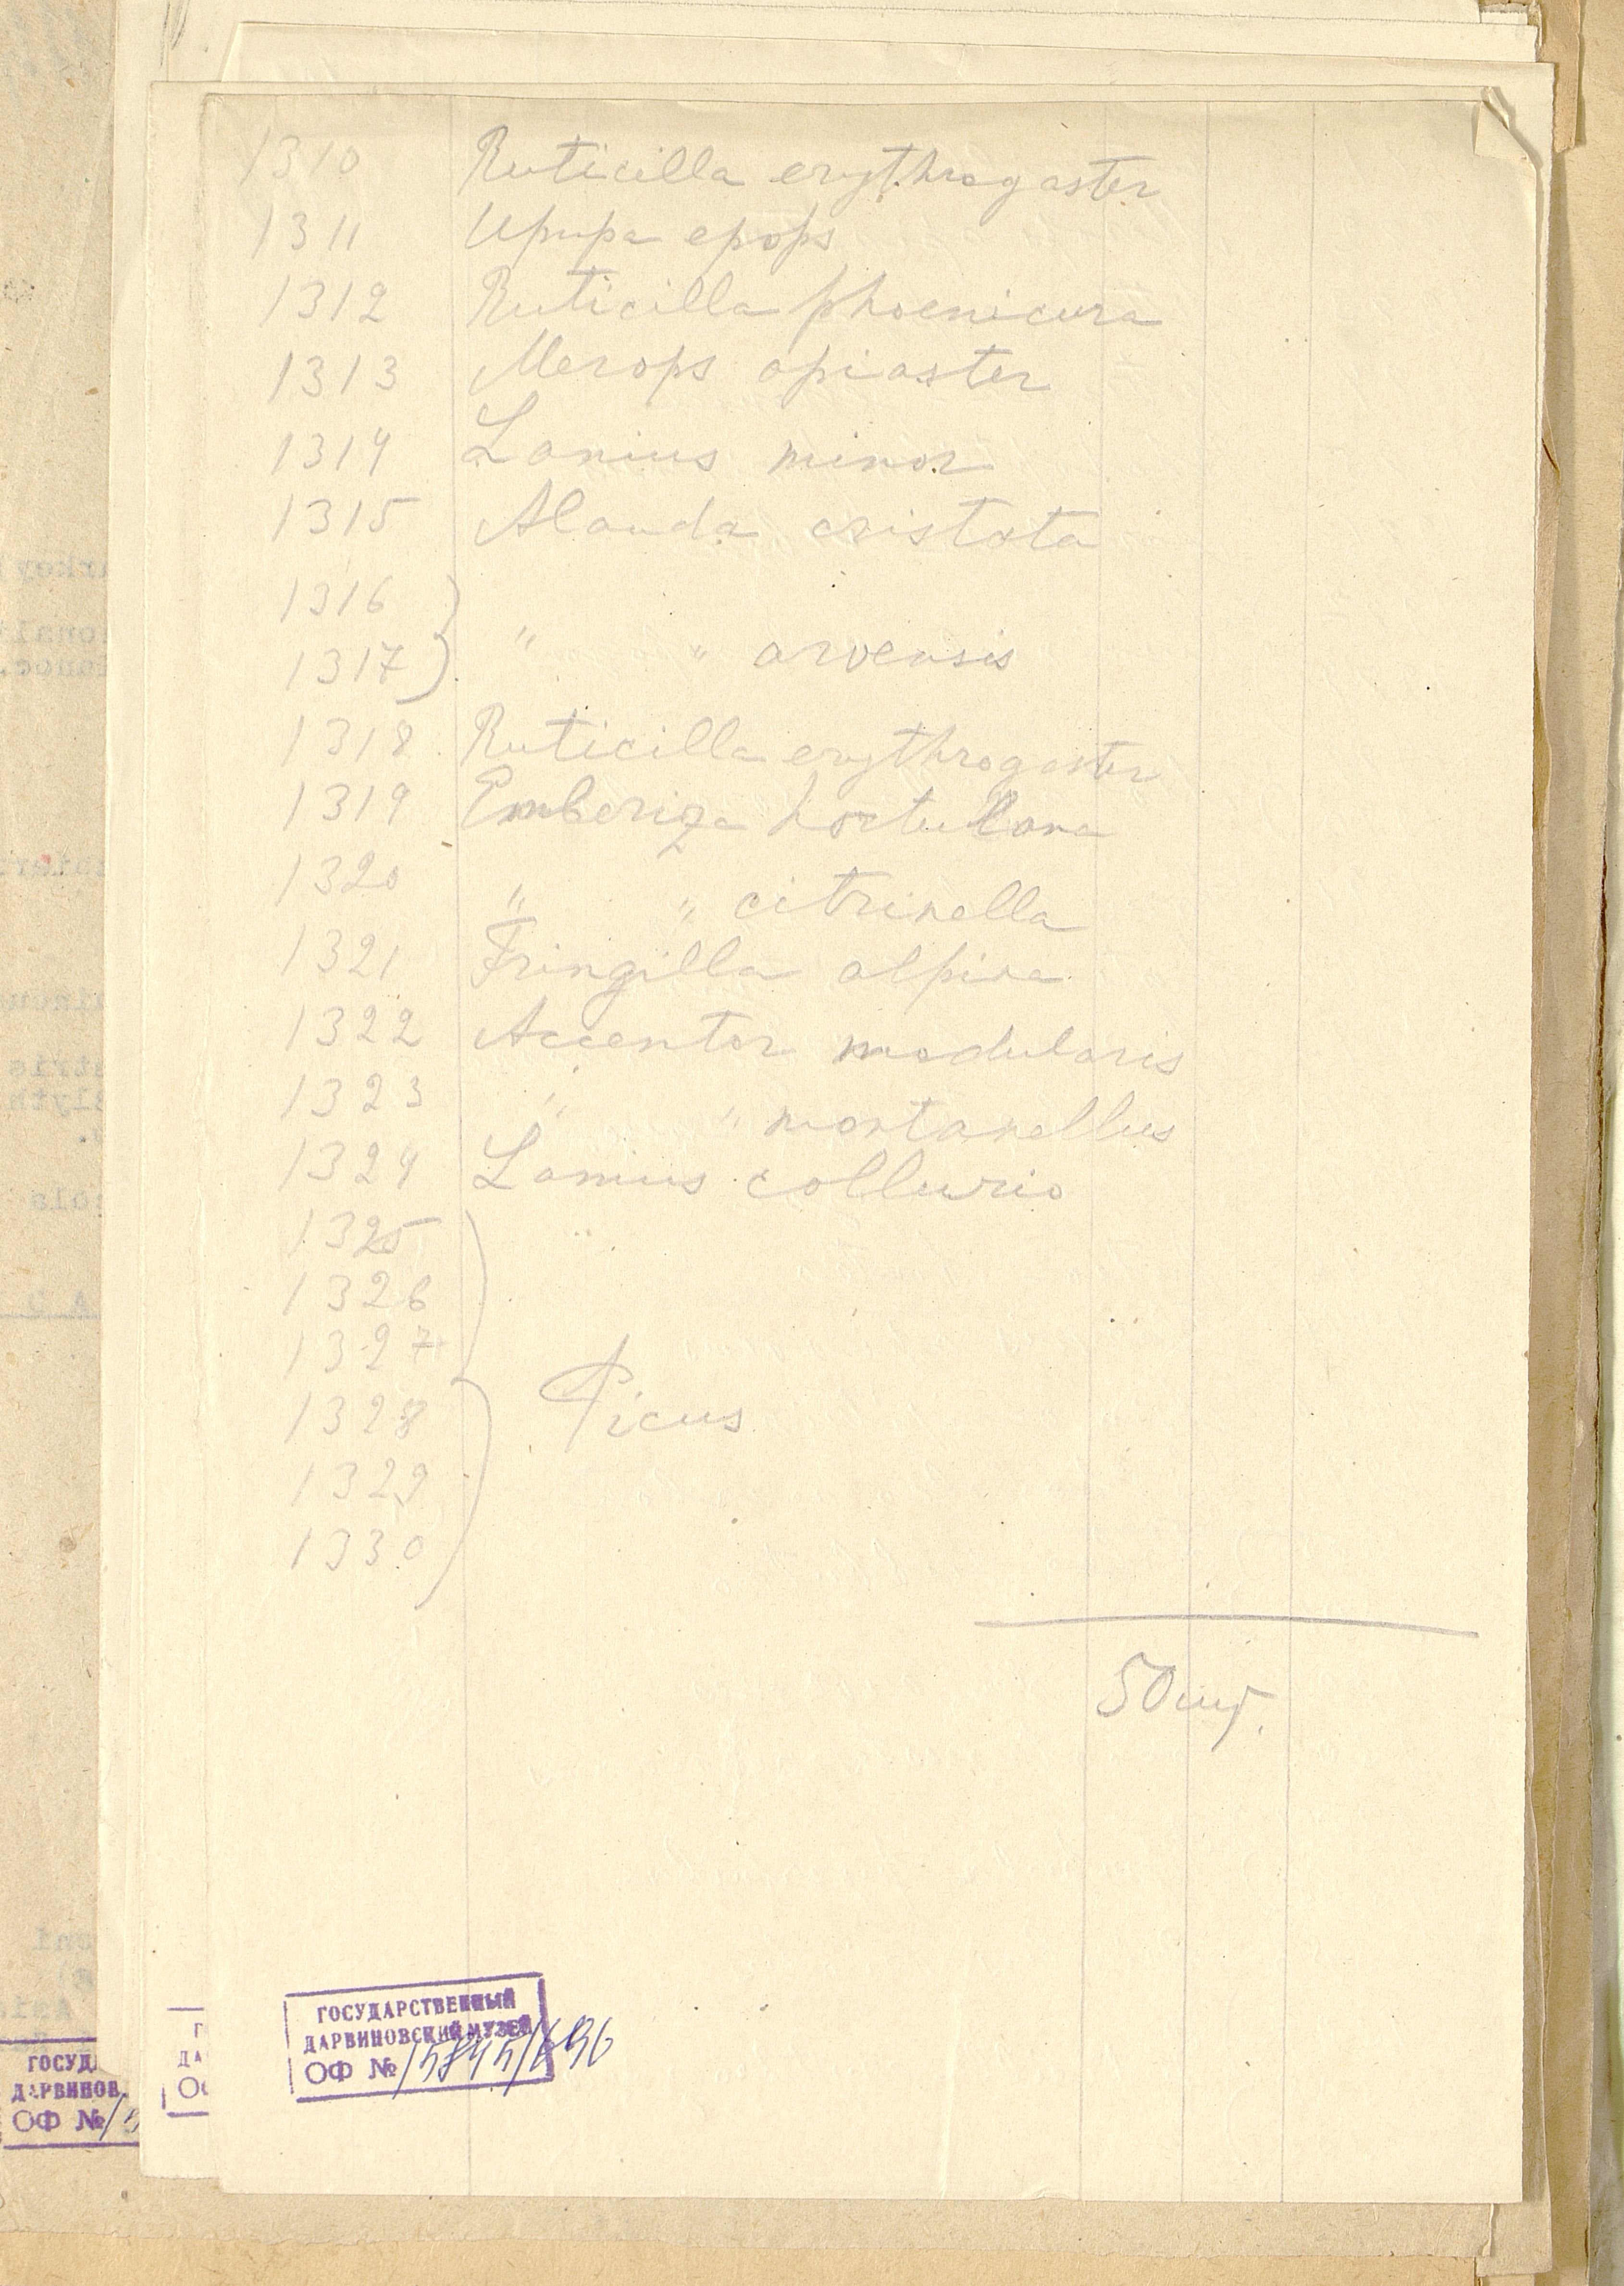 1310 Ruticilla erythrogaster
1311 Upupa epops
1312 Ruticilla phoenicura
1313 Merops apiaster
1314 Lanius minor
1315 Alauda cristata
1316
1317 " " arvensis
1318 Ruticilla erythrogaster
1319 Emberiza hortulana
1320 " " citrinella
1321 Fringilla alpina
1322 Accentor modularis
1323 " " montanellus
1324 Lanius collurio
1325
1326
1327
1328 Picus
1329
1330
50 шт.
ГОСУДАРСТВЕННЫЙ
ДАРВИНОВСКИЙ МУЗЕЙ
ОФ № 15845/696
ГОСУД
ДАРВИНОВ
ОФ №